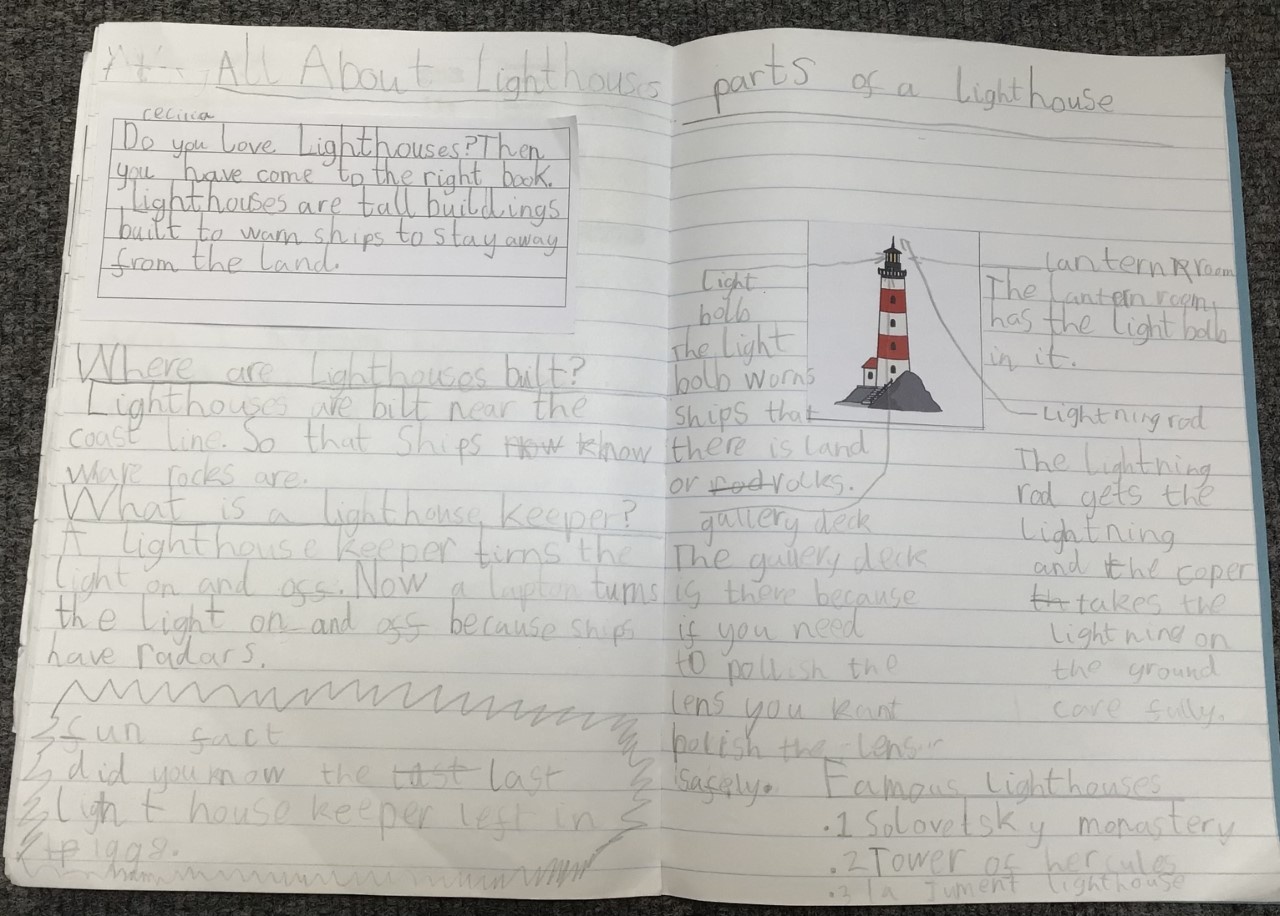 All About Lighthouses
cecilia
Do you love Lighthouses? Then
you have come to the right book.
Lighthouses are tall buildings
built to warn ships to stay away
from the land.
Where are Lighthouses built?
Lighthouses are bilt near the
coast line. So that Ships now know
whare rocks are.
What is a lighthouse keeper?
A lighthouse keeper tirns the
light on and off. Now a laptop turns
the light on and off because ships
have radars.
fun fact
did you now the last last
light house keeper left in
1998.
parts of a Lighthouse
Light
bolb
The light
bolb worns
ships that
there is land
or rod rolks.
gallery deck
The gallery deck
is there because
if you need
to pollish the
lens you kant
polish the lens
safely.
lantern room
The lantern room
has the light bolb
in it.
Lightning rod
The Lightning
rod gets the
Lightning
and the coper
th takes the
lightning on
the ground
care fully.
Famous Lighthouses
.1 Solovetsky monastery
.2 Tower of hercules
.2 la Jument lighthouse